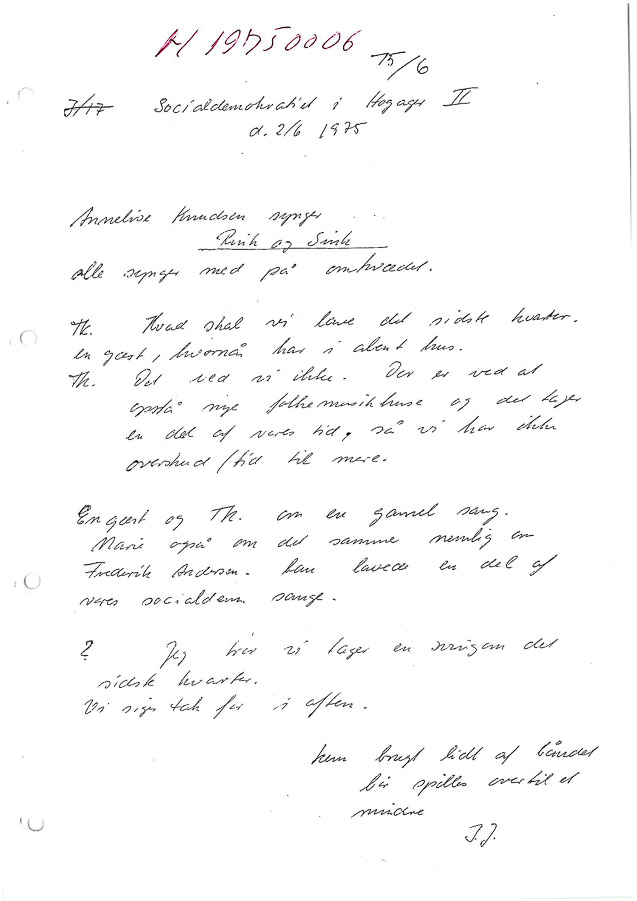 H 19750006
15/6
J/17 Socialdemokratiet i Hogager II
d. 2/6 1975
Annelise Knudsen synger
Rink og Sink
alle synger med på omkvædet.
Th. Hvad skal vi lave det sidste kvarter.
en gæst, hvornå har i åbent hus.
Th. Det ved vi ikke. Der er ved at
opstå nye folkemusikhuse og det tager
en del af vores tid, så vi har ikke
overskud/tid til mere.
En gæst og Th. om en gammel sang.
Marie også om det samme nemlig om
Frederik Andersen. han lavede en del af
vores socialdem sange.
? Jeg tror vi tager en svingom det
sidste kvarter.
Vi siger tak for i aften.
kun brugt lidt af båndet
bør spilles over til et
mindre
J.J.